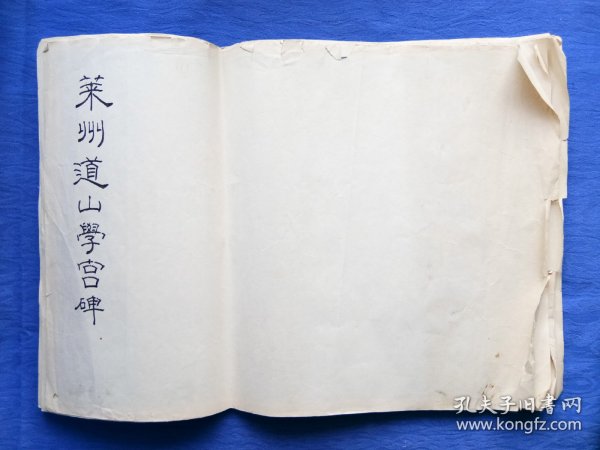 莱州道山學宫碑
孔夫子旧书网
www.kongfz.com